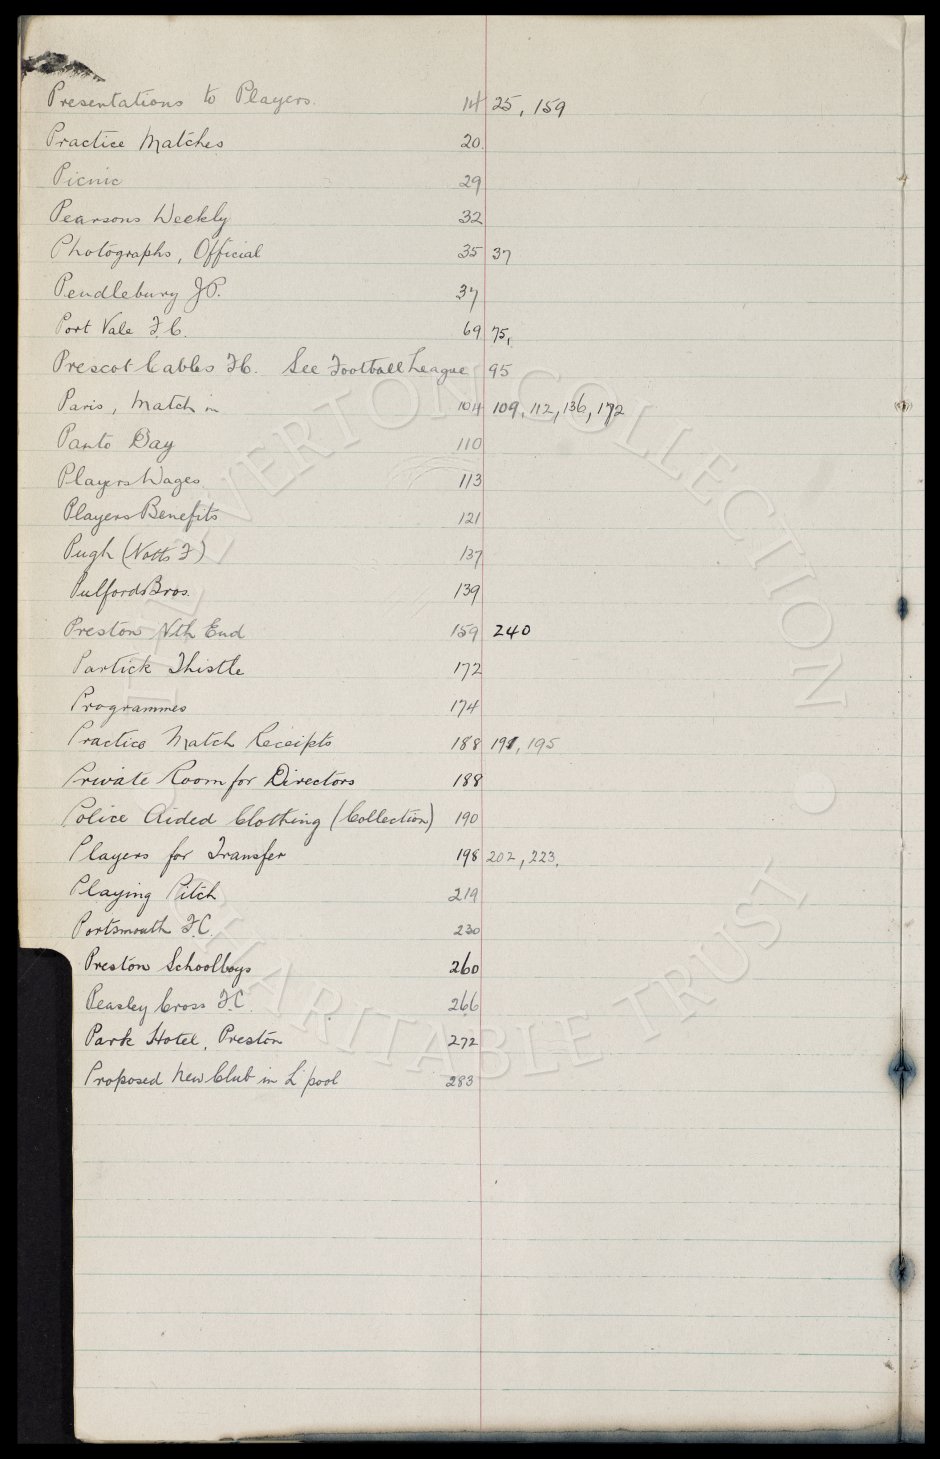 Presentations to Players. 14 25, 159
Practice Matches 20.
Picnic 29
Pearsons Weekly 32
Photographs, Official 35 37
Pendlebury J.P. 37
Port Vale F.C. 69 75,
Prescot Cables F.C. See Football League 95
Paris, Match in 104 109, 112, 136, 172
Panto Day 110
Players Wages 113
Players Benefits 121
Pugh (Notts F) 137
Pulfords Bros. 139
Preston Nth End 159 240
Partick Thistle 172
Programmes 174
Practice Match Receipts 188 191, 195
Private Room for Directors 188
Police Aided Clothing (Collection) 190
Players for Transfer 198 202, 223,
Playing Pitch 219
Portsmouth F.C. 230
Preston Schoolboys 260
Peasley Cross F.C. 266
Park Hotel, Preston 272
Proposed New Club in L'pool 283
EVERTON COLLECTION
CHARITABLE TRUST